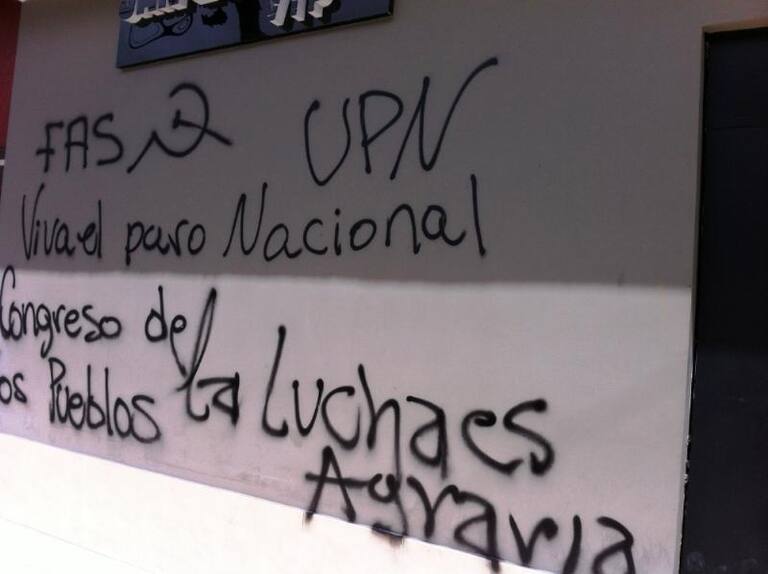 FAS UPN
Viva el paro Nacional
Congreso de
os Pueblos
la Lucha es
Agraria